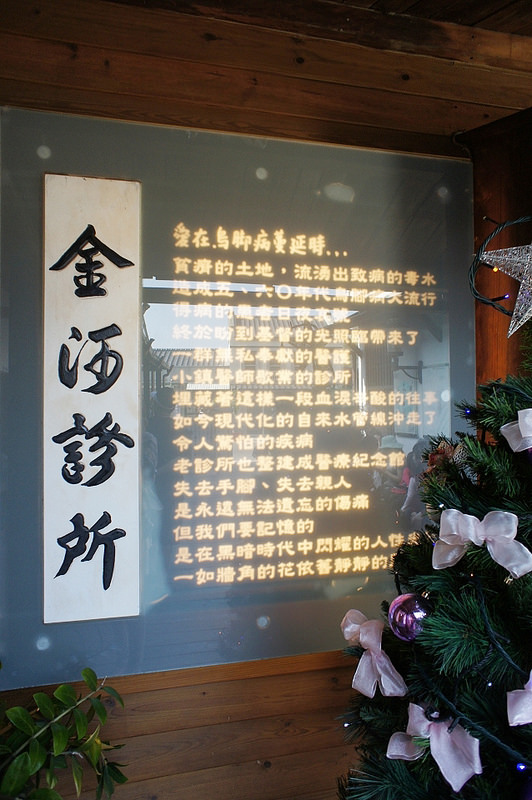 金河診所
愛在烏脚病蔓延時...
貧瘠的土地，流湧出致病的毒水
造成五、六〇年代烏腳病大流行
得病的患者日夜哀號
終於盼到基督的光照臨帶來了
一群無私奉獻的醫護
小鎮醫師歇業的診所
埋藏著這樣一段血淚辛酸的往事
如今現代化的自來水管線沖走了
令人驚怕的疾病
老診所也整建成醫療紀念館
失去手腳、失去親人
是永遠無法遺忘的傷痛
但我們要記憶的
是在黑暗時代中閃耀的人性
一如牆角的花依舊靜靜的